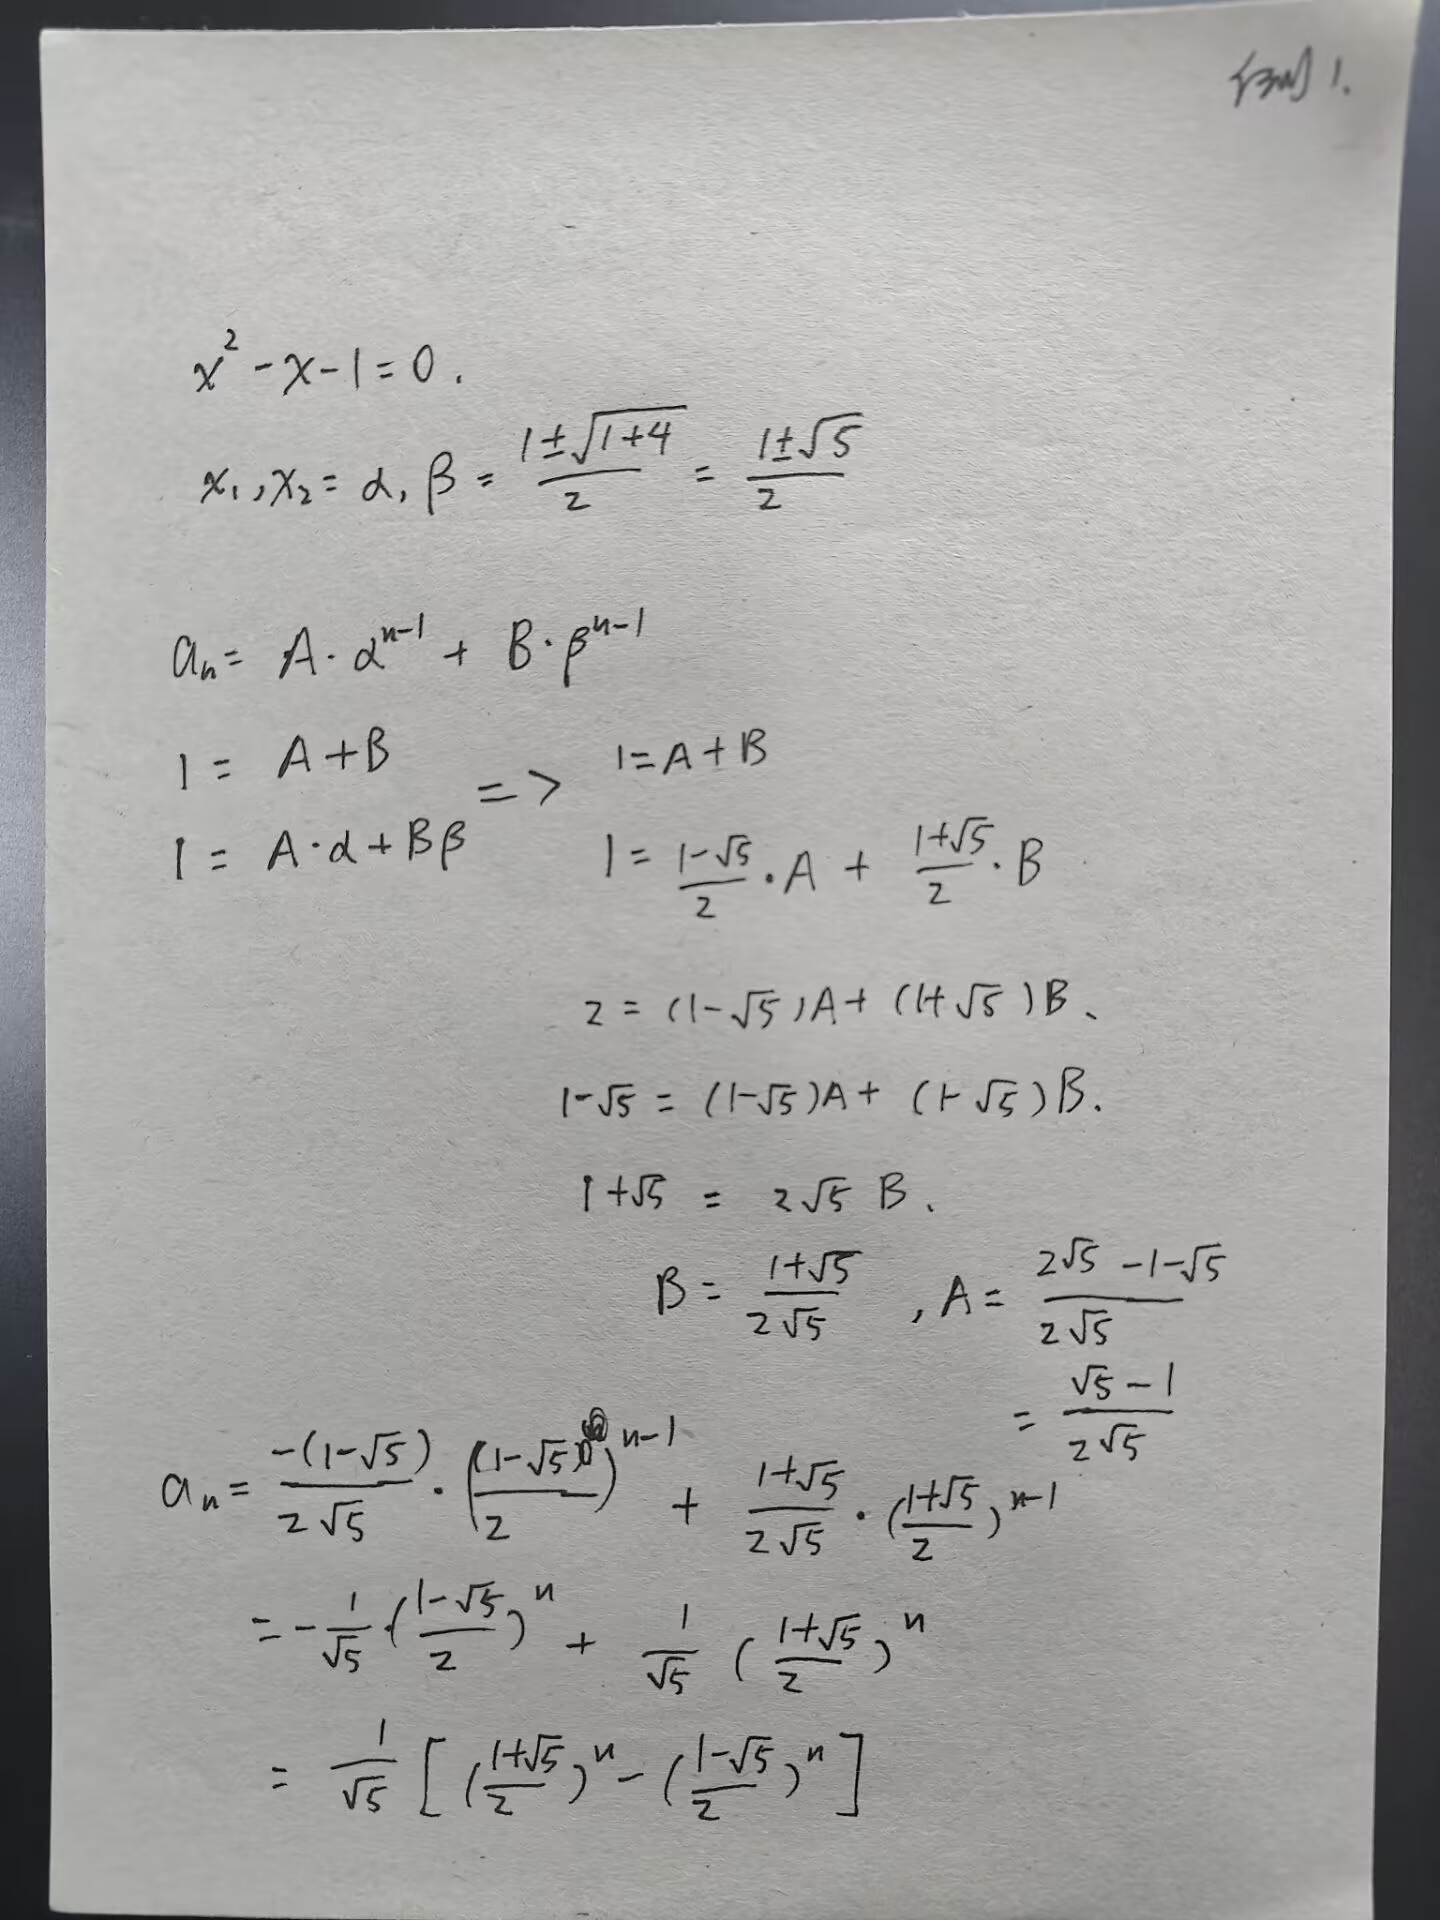 例 1.
x² - x - 1 = 0.
x₁, x₂ = α, β = (1±√(1+4))/2 = (1±√5)/2
aₙ = A·α^(n-1) + B·β^(n-1)
1 = A+B => 1 = A+B
1 = A·α + Bβ 1 = (1-√5)/2 · A + (1+√5)/2 · B
2 = (1-√5)A + (1+√5)B、
1-√5 = (1-√5)A + (1-√5)B.
1+√5 = 2√5 B.
B = (1+√5)/(2√5) , A = (2√5 -1-√5)/(2√5)
= (√5-1)/(2√5)
aₙ = -(1-√5)/(2√5) · ((1-√5)/2)^(n-1) + (1+√5)/(2√5) · ((1+√5)/2)^(n-1)
= -1/√5 · ((1-√5)/2)^n + 1/√5 ((1+√5)/2)^n
= 1/√5 [ ((1+√5)/2)^n - ((1-√5)/2)^n ]